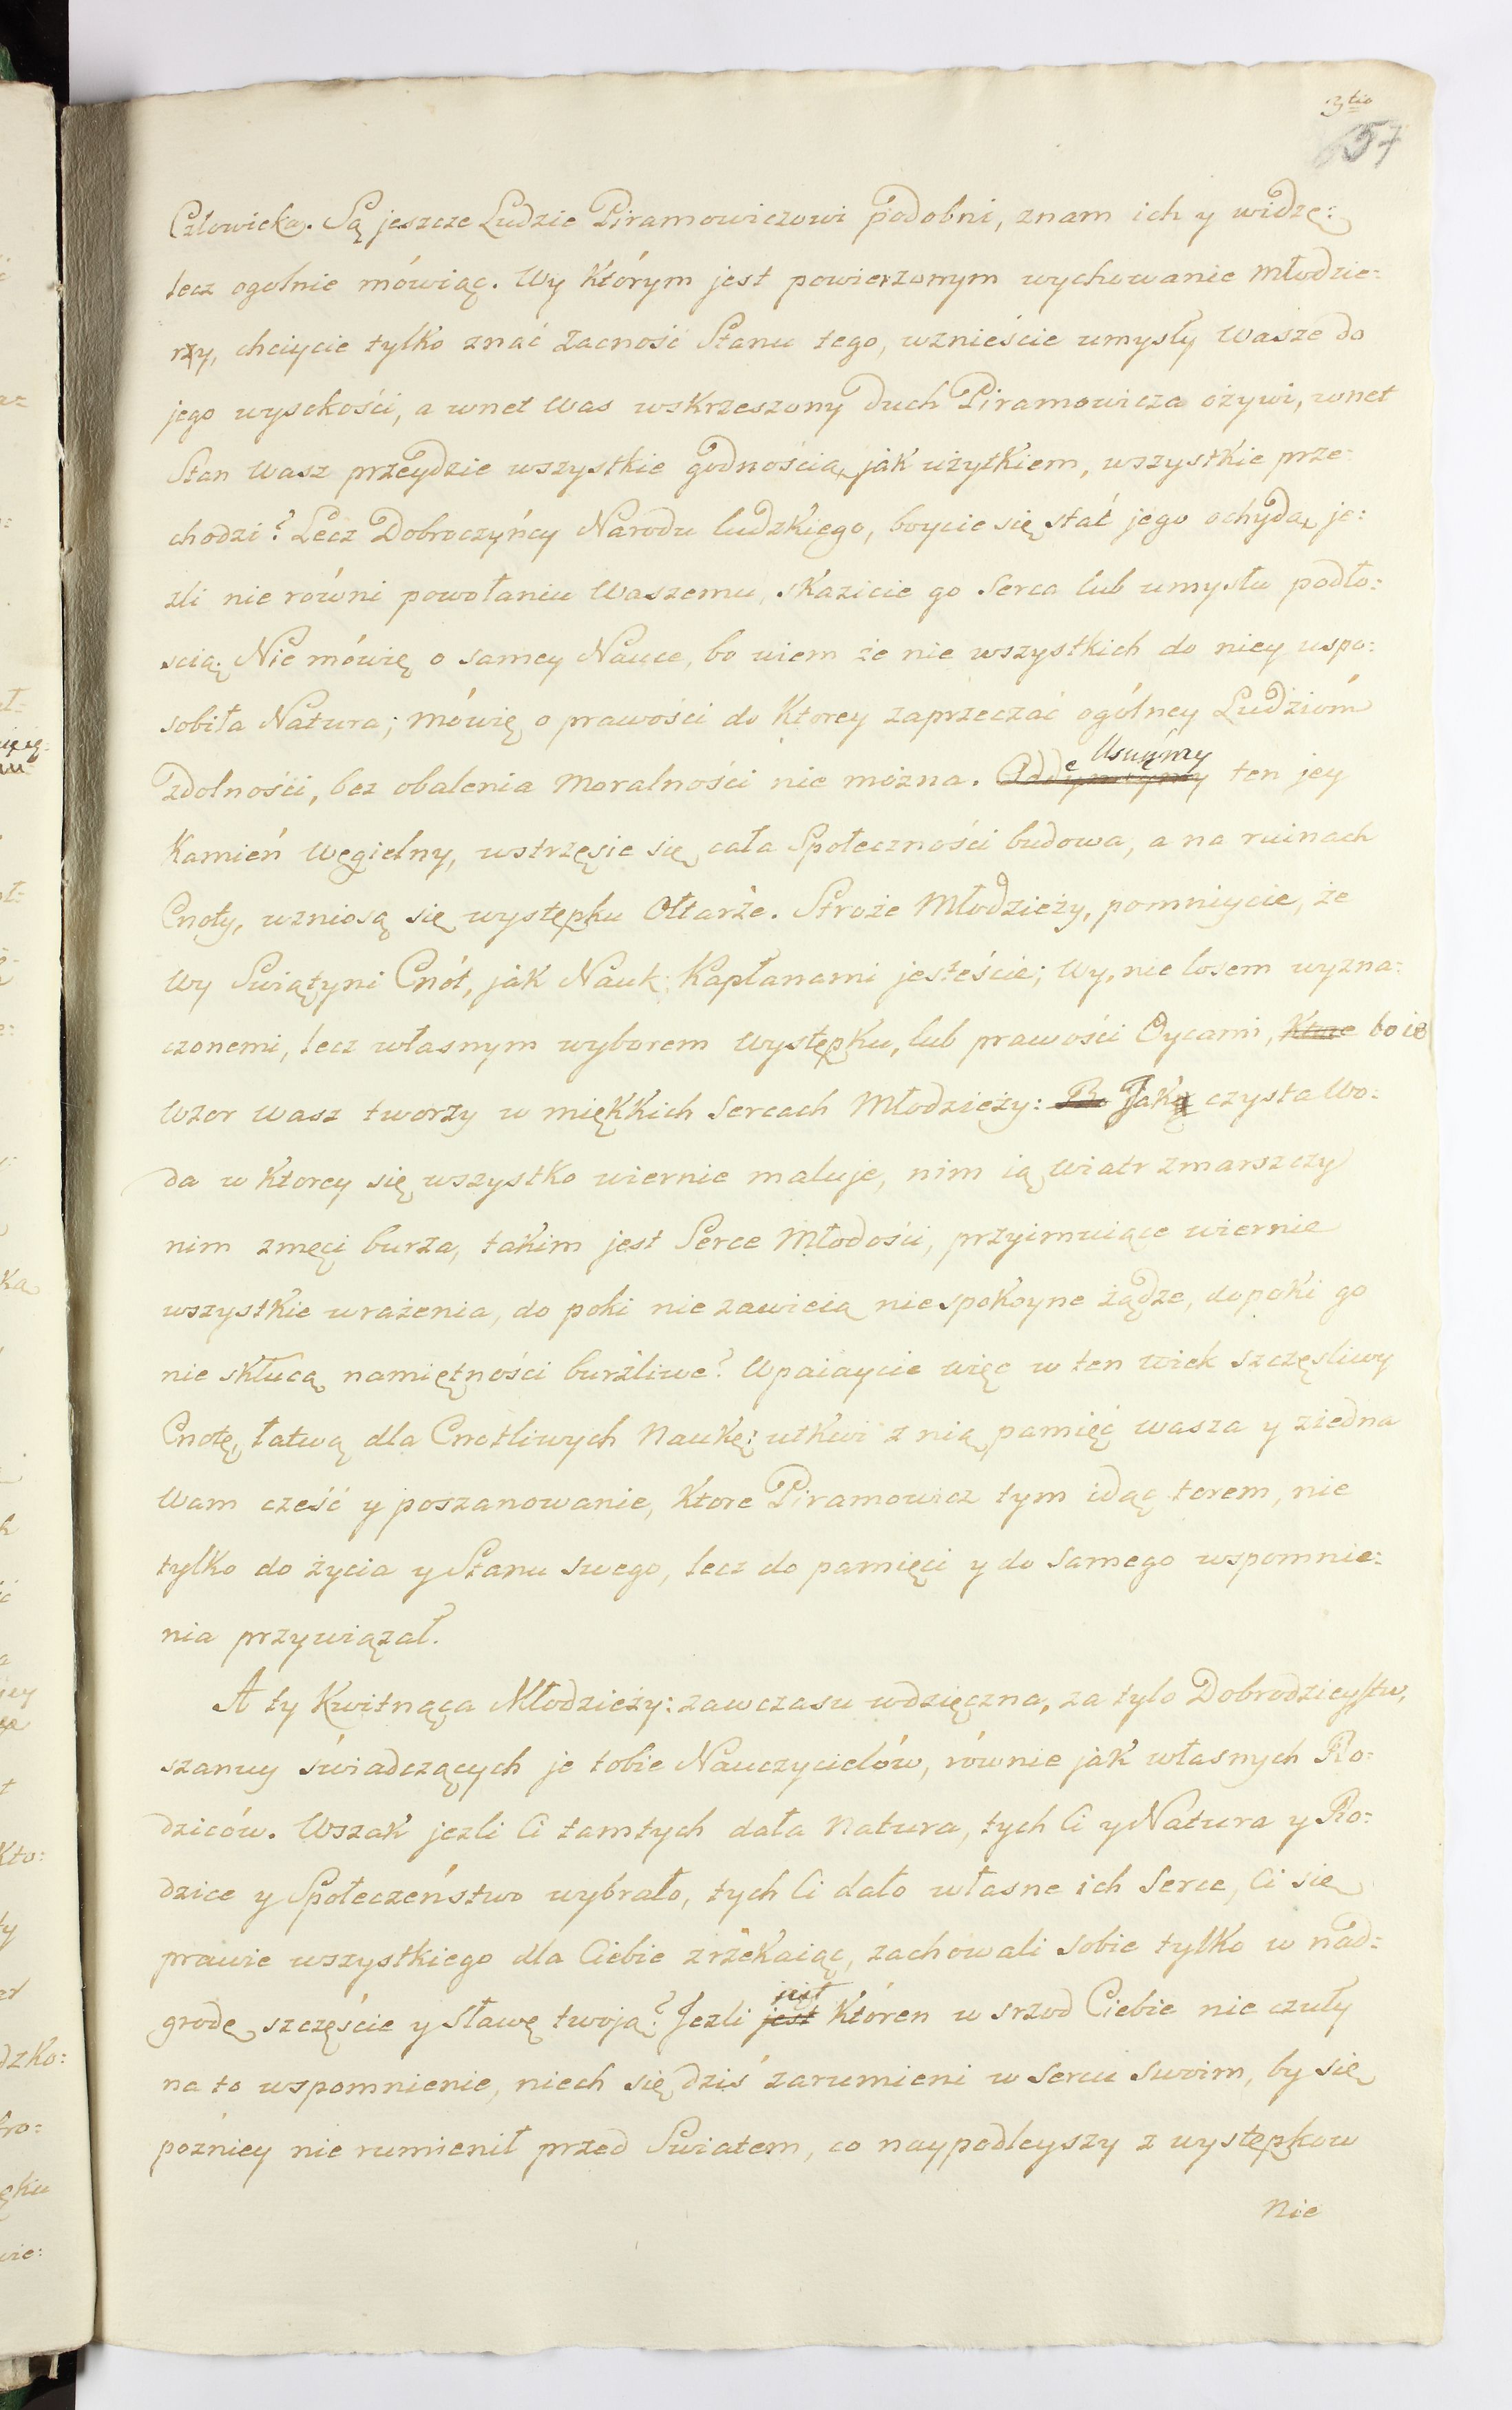 3tio
57
Człowieka. Są jeszcze Ludzie Piramowiczowi podobni, znam ich y widzę:
lecz ogolnie mówiąc. Wy którym jest powierzonym wychowanie Młodzie:
rzy, chciycie tylko znać Zacność Stanu tego, wznieście umysły Wasze do
jego wysokości, a wnet Was wskrzeszony Duch Piramowicza ożywi, wnet
Stan Wasz przeydzie wszystkie godnością, jak użytkiem, wszystkie prze:
chodzi? Lecz Dobroczyńcy Narodu ludzkiego, boycie się stać jego ochydą, je:
zli nie równi powołaniu Waszemu, skazicie go Serca lub umysłu podło:
scią. Nie mówię o samey Nauce, bo wiem że nie wszystkich do niey uspo:
sobiła Natura; mówię o prawości do Ktorey zaprzeczać ogólney Ludziom
zdolności, bez obalenia Moralności nie można. Usuńmy ten jey
Kamień Węgielny, wstrzęsie się cała Społeczności budowa, a na ruinach
Cnoty, wzniosą się występku Ołtarze. Stroże Młodzieży, pomniycie, że
Wy Swiątyni Cnót, jak Nauk Kapłanami jesteście; Wy, nie losem wyzna:
czonemi, lecz własnym wyborem Występku, lub prawości Oycami, Ktore bo ie
Wzor wasz tworzy w miękkich Sercach Młodzieży: Bo Jak czysta Wo:
da w Ktorey się wszystko wiernie maluje, nim ią Wiatr zmarszczy
nim zmęci burza, takim jest Serce Młodości, przyimuiące wiernie
wszystkie wrażenia, do poki nie zawieią niespokoyne żądze, dopoki go
nie skłucą namiętności burzliwe? Wpaiaycie więc w ten wiek szczęsliwy
Cnotę, łatwą dla Cnotliwych Naukę: utkwi z nią pamięć wasza y ziedna
Wam cześć y poszanowanie, Ktore Piramowicz tym idąc torem, nie
tylko do życia y Stanu swego, lecz do pamięci y do samego wspomnie:
nia przywiązał.
A ty Kwitnąca Młodzieży: zawczasu wdzięczna, za tylo Dobrodzieystw,
szanuy świadczących je tobie Nauczycielów, równie jak własnych Ro:
dziców. Wszak jezli Ci tamtych dała Natura, tych Ci y Natura y Ro:
dzice y Społeczeństwo wybrało, tych Ci dało własne ich Serce, Ci się
prawie wszystkiego dla Ciebie zrzekaiąc, zachowali sobie tylko w nad:
grodę szczęście y Sławę twoją? Jezli jest
jest Któren w srzod Ciebie nie czuły
na to wspomnienie, niech się dziś zarumieni w Sercu Swoim, by się
pozniey nie rumienił przed Swiatem, co naypodleyszy z występkow
nie